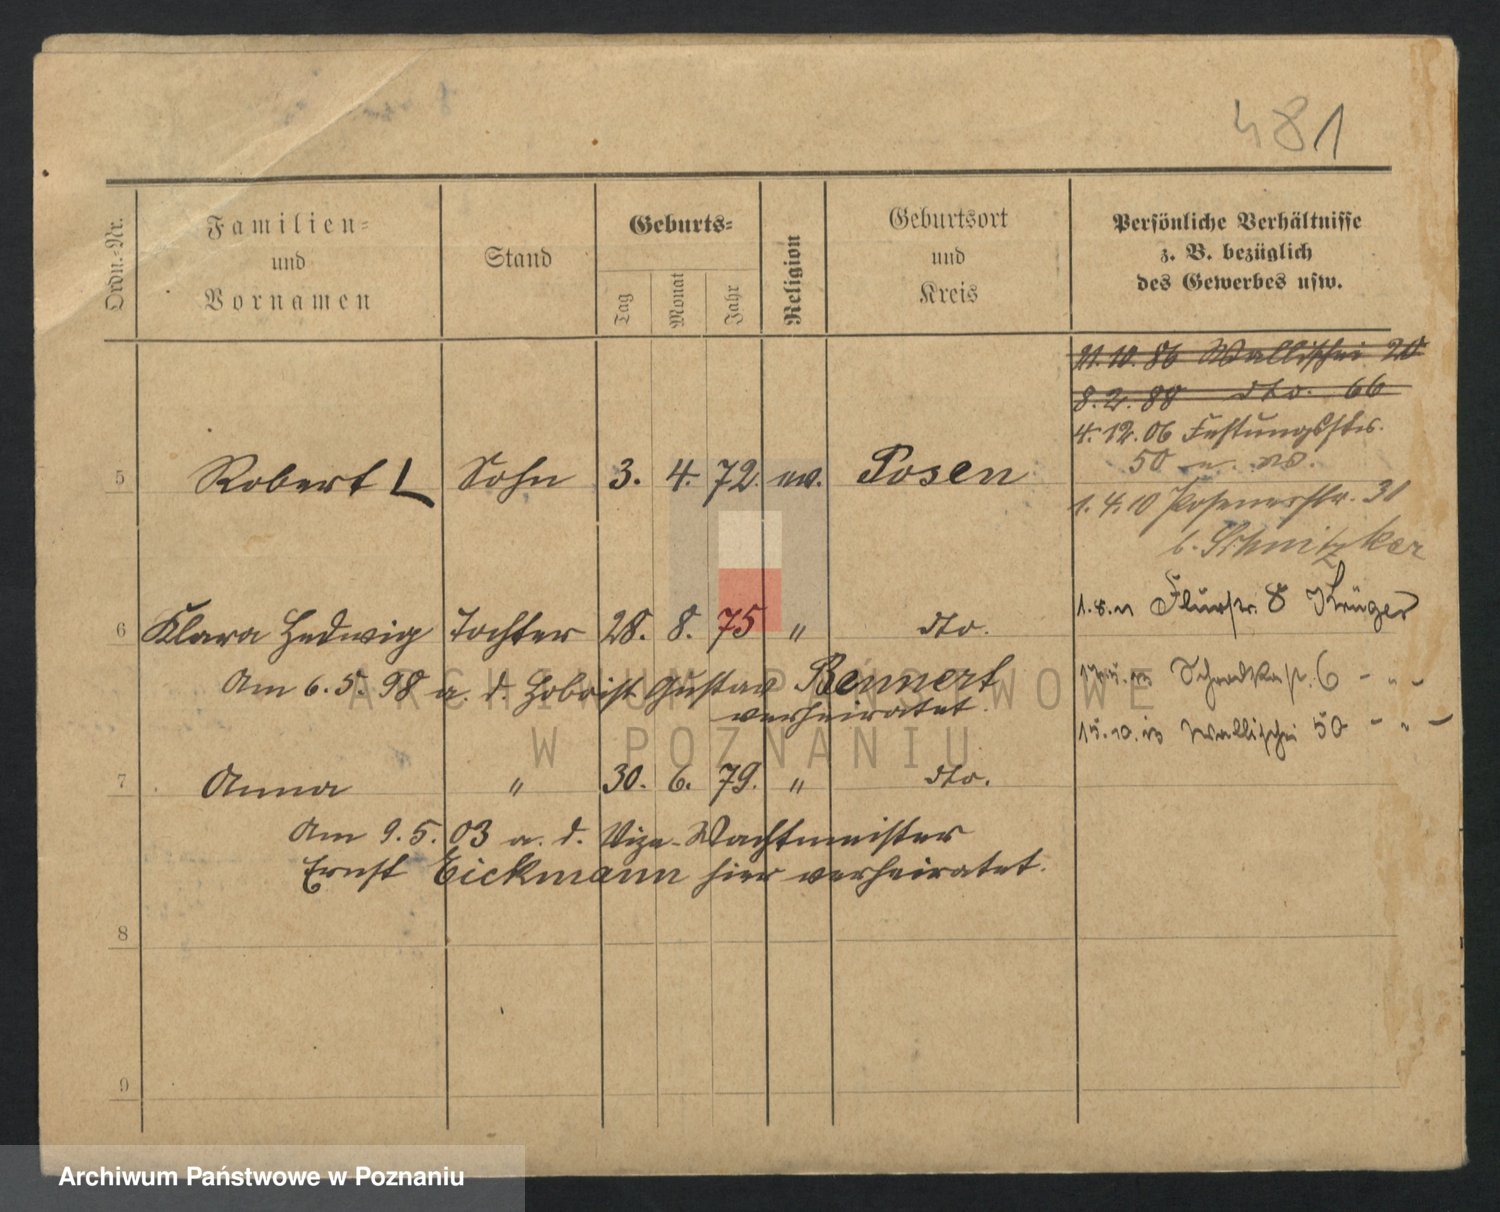 481
Ordn.-Nr.
Familien-
und
Vornamen
Stand
Geburts-
Tag
Monat
Jahr
Religion
Geburtsort
und
Kreis
Persönliche Verhältnisse
z. B. bezüglich
des Gewerbes usw.
21.10.86 Wallischei 20
8.2.88 dto. 66
4.12.06 Festungsstr.
50
5 Robert L Sohn 3. 4. 72. ev. Posen
1.4.10 Posenerstr. 31
b. Schnitzker
6 Klara Hedwig Tochter 28. 8. 75 " dto.
Flurstr. 8 Krüger
Am 6.5.98 a. d. Hoboist Gustav Bennert
verheiratet.
6 - " -
Wallischei 50 - " -
7 Anna " 30. 6. 79. " dto.
Am 9.5.03 a. d. Vize-Wachtmeister
Ernst Eickmann hier verheiratet.
8
9
ARCHIWUM PAŃSTWOWE
W POZNANIU
Archiwum Państwowe w Poznaniu